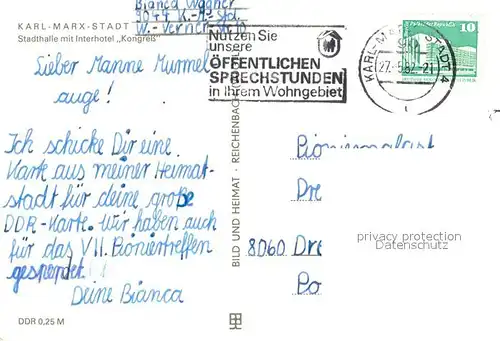 Bianca Wagner
9044 K.-M.-Stdt.
W.-Verner-Str.
KARL-MARX-STADT
Stadthalle mit Interhotel „Kongreß"
Nutzen Sie
unsere
ÖFFENTLICHEN
SPRECHSTUNDEN
in Ihrem Wohngebiet
KARL-MARX-STADT 4
27.-5.82.-21
10
Lieber Manne Murmel
auge!
Ich schicke Dir eine
Karte aus meiner Heimat-
stadt für deine große
DDR-Karte. Wir haben auch
für das VII. Pioniertreffen
gespendet.
Deine Bianca
DDR 0,25 M
BILD UND HEIMAT · REICHENBACH
Pionierpalast
Dre
8060 Dre
Po
privacy protection
Datenschutz